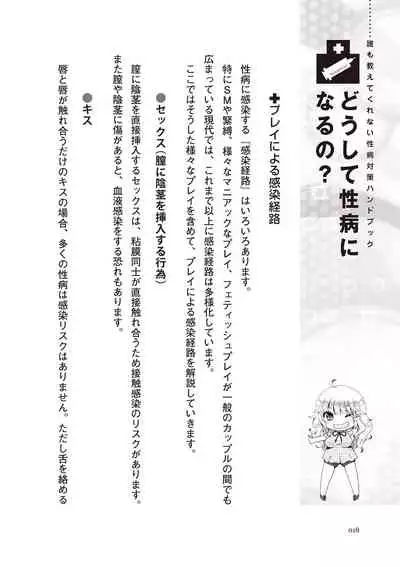 誰も教えてくれない性病対策ハンドブック
どうして性病に
なるの?
✚プレイによる感染経路
性病に感染する『感染経路』はいろいろあります。
特にSMや緊縛、様々なマニアックなプレイ、フェティッシュプレイが一般のカップルの間でも
広まっている現代では、これまで以上に感染経路は多様化しています。
ここではそうした様々なプレイを含めて、プレイによる感染経路を解説していきます。
●セックス(膣に陰茎を挿入する行為)
膣に陰茎を直接挿入するセックスは、粘膜同士が直接触れ合うため接触感染のリスクがあります。
また膣や陰茎に傷があると、血液感染をする恐れもあります。
●キス
唇と唇が触れ合うだけのキスの場合、多くの性病は感染リスクはありません。ただし舌を絡める
018